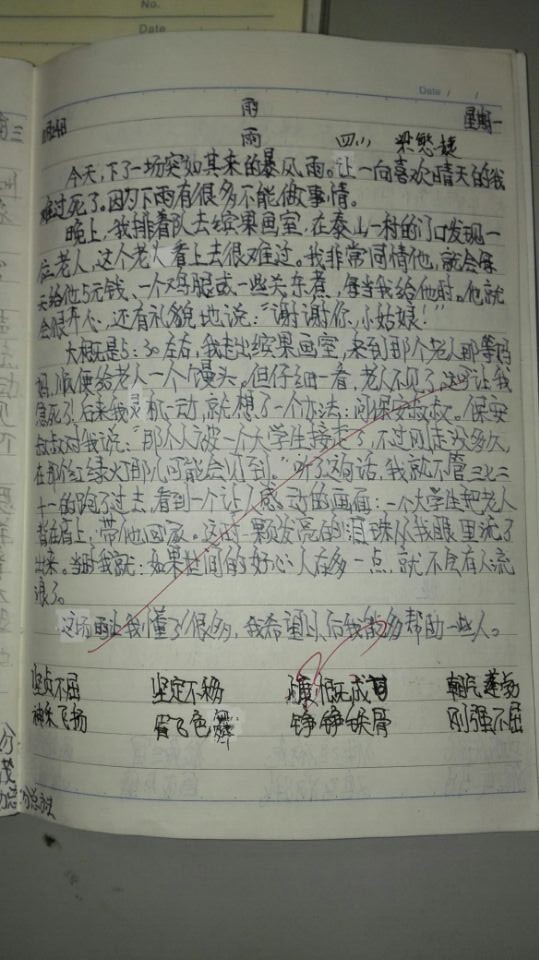 Date
Date / /
雨
星期一
雨
四(1)
今天,下了一场突如其来的暴风雨。让一向喜欢晴天的我
难过死了。因为下雨有很多不能做事情。
晚上,我排着队去缤果画室,在泰山一村的门口发现一
位老人,这个老人看上去很难过。我非常同情他,就会每
天给他5元钱、一个鸡腿或一些关东煮,每当我给他时。他就
会很开心,还有礼貌地说:“谢谢你,小姑娘!”
大概是5:30左右,我走出缤果画室,来到那个老人那等妈
妈,顺便给老人一个馒头。但仔细一看,老人不见了,这可让我
急死了!后来我灵机一动,就想了一个办法:问保安叔叔。保安
叔叔对我说:“那个人被一个大学生接走了,不过刚走没多久,
在那个红绿灯那儿可能会看到。”听了这句话,我就不管三七二
十一的跑了过去,看到一个让人感动的画面:一个大学生把老人
背在肩上,带他回家。这时一颗发亮的泪珠从我眼里流了
出来。当时我就:如果世间的好心人在多一点,就不会有人流
浪了。
这场雨让我懂了很多,我希望以后我能多帮助一些人。
坚贞不屈 坚定不移 朝气蓬勃
神采飞扬 眉飞色舞 铮铮铁骨 刚强不屈